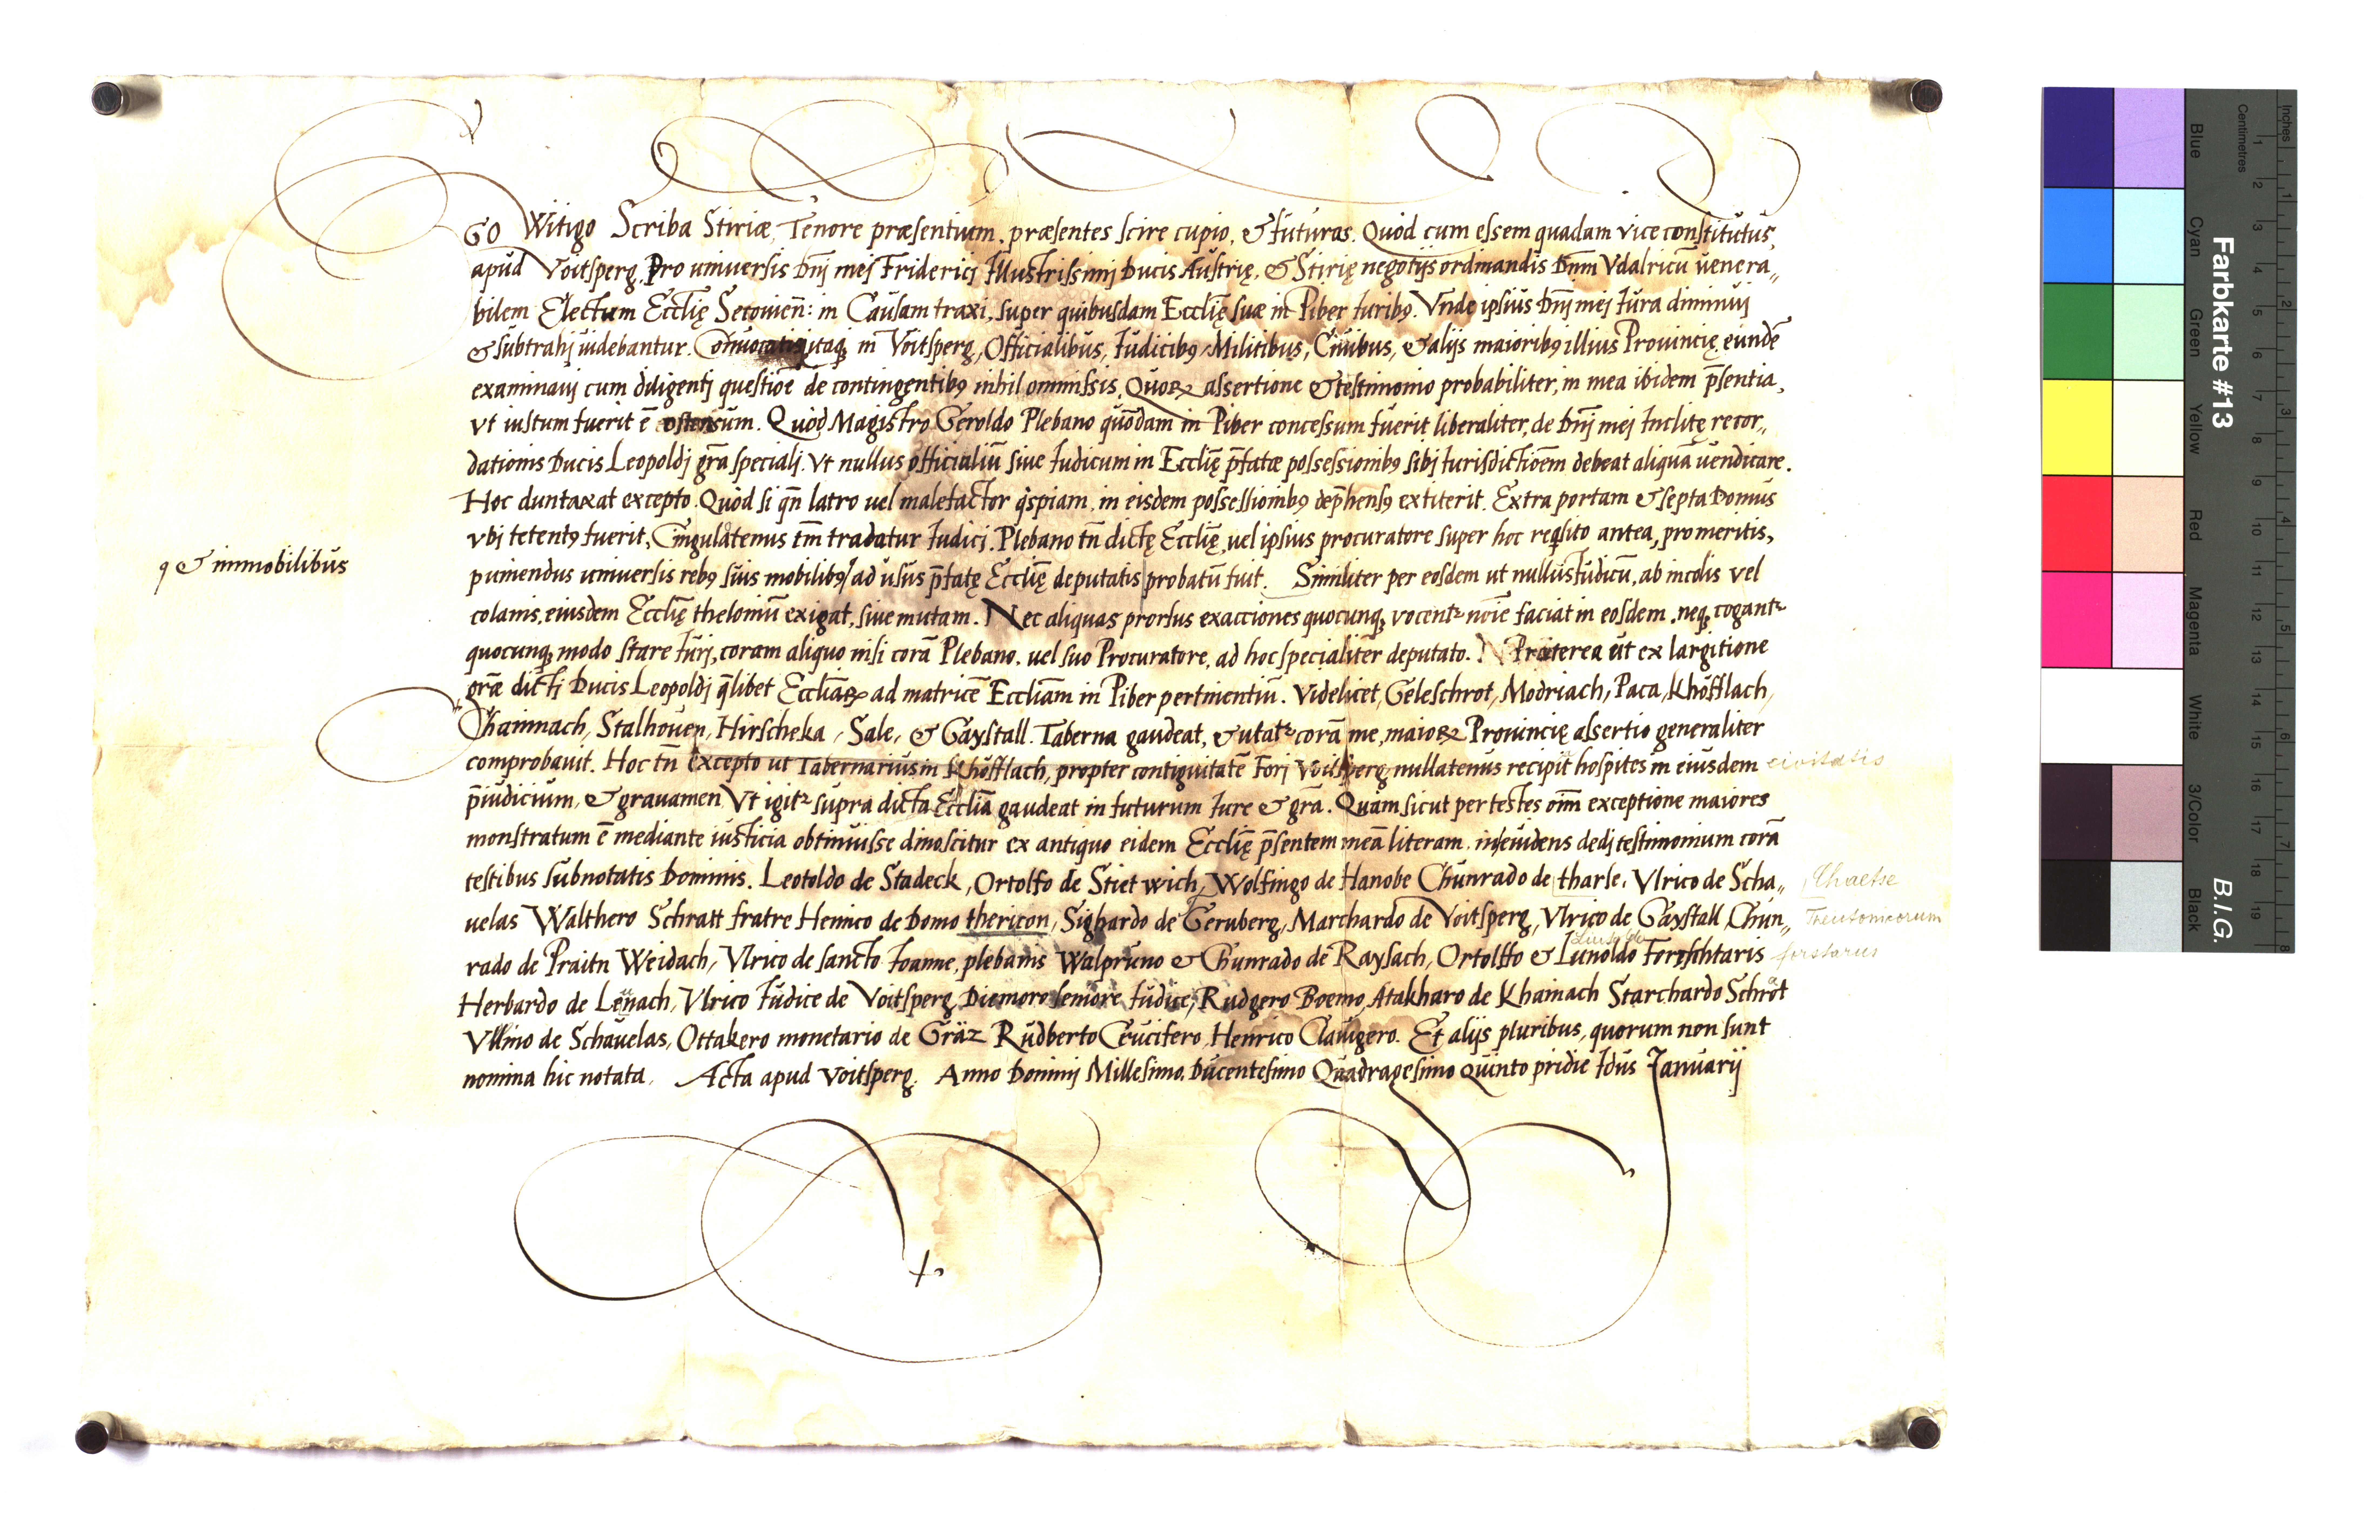 GO Witigo Scriba Stiriæ, Tenore præsentium, præsentes scire cupio, & futuros. Quòd cum essem quadam vice constitutus,
apud Voitsperg, Pro universis Dnj mej Friderici Illustrissimj Ducis Austrię, & Stirię negotijs ordinandis Dnm Vdalricū venera,,
bilem Electum Ecclię Secovien: in Causam traxi, super quibusdam Ecclię suæ in Piber Iuribꝯ. Vnde ipsius Dnj mej Iura diminuj
& subtrahj uidebantur. Convocatis itaqꝫ in Voitsperg, Officialibus, Iudicibꝯ, Militibus, Civibus, & alijs maioribꝯ illius Provincię, eundē
examinauj cum diligentj questiōe de contingentibꝯ nihil ommissis, Quoꝝ assertione & testimonio probabiliter, in mea ibidem p̄sentia,
vt iustum fuerit ē ostensum. Quòd Magistro Geroldo Plebano quōdam in Piber concessum fuerit liberaliter, de Dnj mej Inclitę recor,,
dationis Ducis Leopoldj gr̄a specialj. Vt nullus officialiū siue Iudicum in Ecclię p̄fatæ possessionibꝯ sibj Iurisdictiōem debeat aliquā uendicare.
Hoc duntaxat excepto. Quòd si qn̄ latro uel malefactor q̇spiam, in eisdem possessionibꝯ dep̄hensꝯ extiterit. Extra portam & septa Domus
vbj tetentꝯ fuerit, Cingulatenus tm̄ tradatur Iudici. Plebano tn̄ dictę Ecclię, uel ipsius procuratore super hoc reqsito antea, pro meritis,
puniendus uniuersis rebꝯ suis mobilibꝯ ad usus p̄fatę Ecclię deputatis probatū fuit. Similiter per eosdem ut nullus Iudicū, ab incolis vel
ꝯ & immobilibus
colanis, eiusdem Ecclię theloniū exigat, siue mutam. Nec aliquas prorsus exacciones quocunqꝫ vocentꝛ noīe faciat in eosdem, neqꝫ cogantꝛ
quocunqꝫ modo stare Iurj, coram aliquo nisi corā Plebano, uel suo Procuratore, ad hoc specialiter deputato. Præterea ut ex largitione
gr̄æ dictj Ducis Leopoldj q̄libet Eccliaꝝ ad matricē Eccliam in Piber pertinentiū. Videlicet, Geleschrot, Modriach, Paca, Khöfflach,
Chainnach, Stalhouen, Hirscheka, Sale, & Gaystall. Taberna gaudeat, & utatꝛ corā me, maioꝝ Prouincię assertio generaliter
comprobauit. Hoc tn̄ excepto ut Tabernarius in Khöfflach, propter contiguitatē Forj Voitsperg nullatenus recipit hospites in eiusdem civitatis
p̄iudicium, & grauamen. Vt igitꝛ supra dicta Ecclia gaudeat in futurum Iure & gr̄a. Quam sicut per testes om̄ exceptione maiores
monstratum ē mediante iusticia obtinuisse dinoscitur ex antiquo eidem Ecclię p̄sentem meā literam, in euidens dedj testimonium corā
testibus subnotatis Dominis. Leotoldo de Stadeck, Ortolfo de Stretwich, Wolfingo de Hanobe Chunrado de tharse, Vlrico de Scha,,
uelas Walthero Schratt fratre Henrico de Domo thericon, Sighardo de Geruberg, Marchardo de Voitsperg, Vlrico de Gaystall, Chun,,
Teutonicorum
rado de Praitn Weidach, Vlrico de sancto Ioanne, plebanis Walpruno & Chunrado de Raysach, Ortolffo & Lunoldo Forschtaris
Herbardo de Lenach, Vlrico Iudice de Voitsperg, Diemoro seniore Iudice, Rudgero Boemo, Atakharo de Khainach Starchardo Schrot
Vllino de Schauelas, Ottakero monetario de Gräz Rudberto Crucifero, Henrico Clauigero. Et alijs pluribus, quorum non sunt
nomina hic notata. Acta apud Voitsperg. Anno Dominj Millesimo, Ducentesimo Quadragesimo quinto pridie Idus Ianuarij
Farbkarte #13
B.I.G.
Inches
Centimetres
Blue
Cyan
Green
Yellow
Red
Magenta
White
3/Color
Black